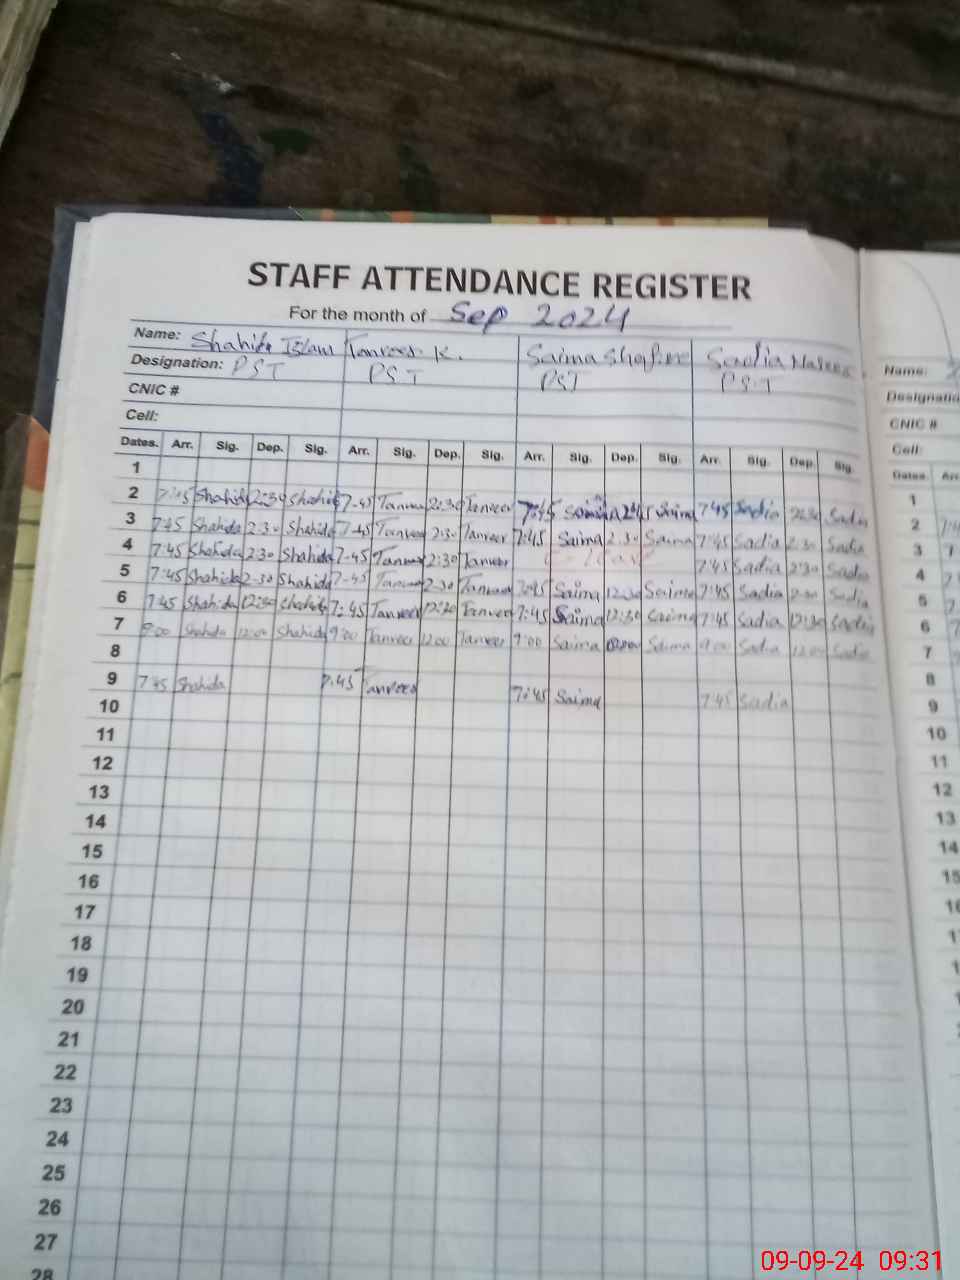 STAFF ATTENDANCE REGISTER
For the month of Sep 2024
Name: Shahida Islam Tanveer K. Saima Sadia Name:
Designation: PST PST PST PST
CNIC # CNIC #
Cell: Cell:
Dates. Arr. Sig. Dep. Sig. Arr. Sig. Dep. Sig. Arr. Sig. Dep. Sig. Arr. Sig. Dep. Sig. Dates.
1 1
2 7:45 Shahida 2:30 Shahida 7-45 Tanveer 2:30 Tanveer 7:45 Saima Saima 7:45 Sadia 2:30 Sadia 2
3 7:45 Shahida 2:30 Shahida 7-45 Tanveer 2:30 Tanveer 7:45 Saima 2:30 Saima 7:45 Sadia 2:30 Sadia 3
4 7:45 Shahida 2:30 Shahida 7-45 Tanveer 2:30 Tanveer C-leave 7:45 Sadia 2:30 Sadia 4
5 7:45 Shahida 2-30 Shahida 7-45 Tanveer 2-30 Tanveer 7:45 Saima 12:30 Saima 7:45 Sadia Sadia 5
6 7:45 Shahida 12:30 Shahida 7:45 Tanveer 12:30 Tanveer 7:45 Saima 12:30 Saima 7:45 Sadia 12:30 Sadia 6
7 9:00 Shahida 12:00 Shahida 9:00 Tanveer 12:00 Tanveer 9:00 Saima 12:00 Saima 9:00 Sadia 12:00 Sadia 7
8 8
9 7:45 Shahida 7:45 Tanveer 7:45 Saima 7:45 Sadia 9
10 10
11 11
12 12
13 13
14 14
15 15
16
17
18
19
20
21
22
23
24
25
26
27
28
09-09-24 09:31